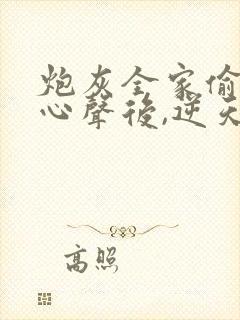 炮灰全家偷
心聲後,逆天
高照